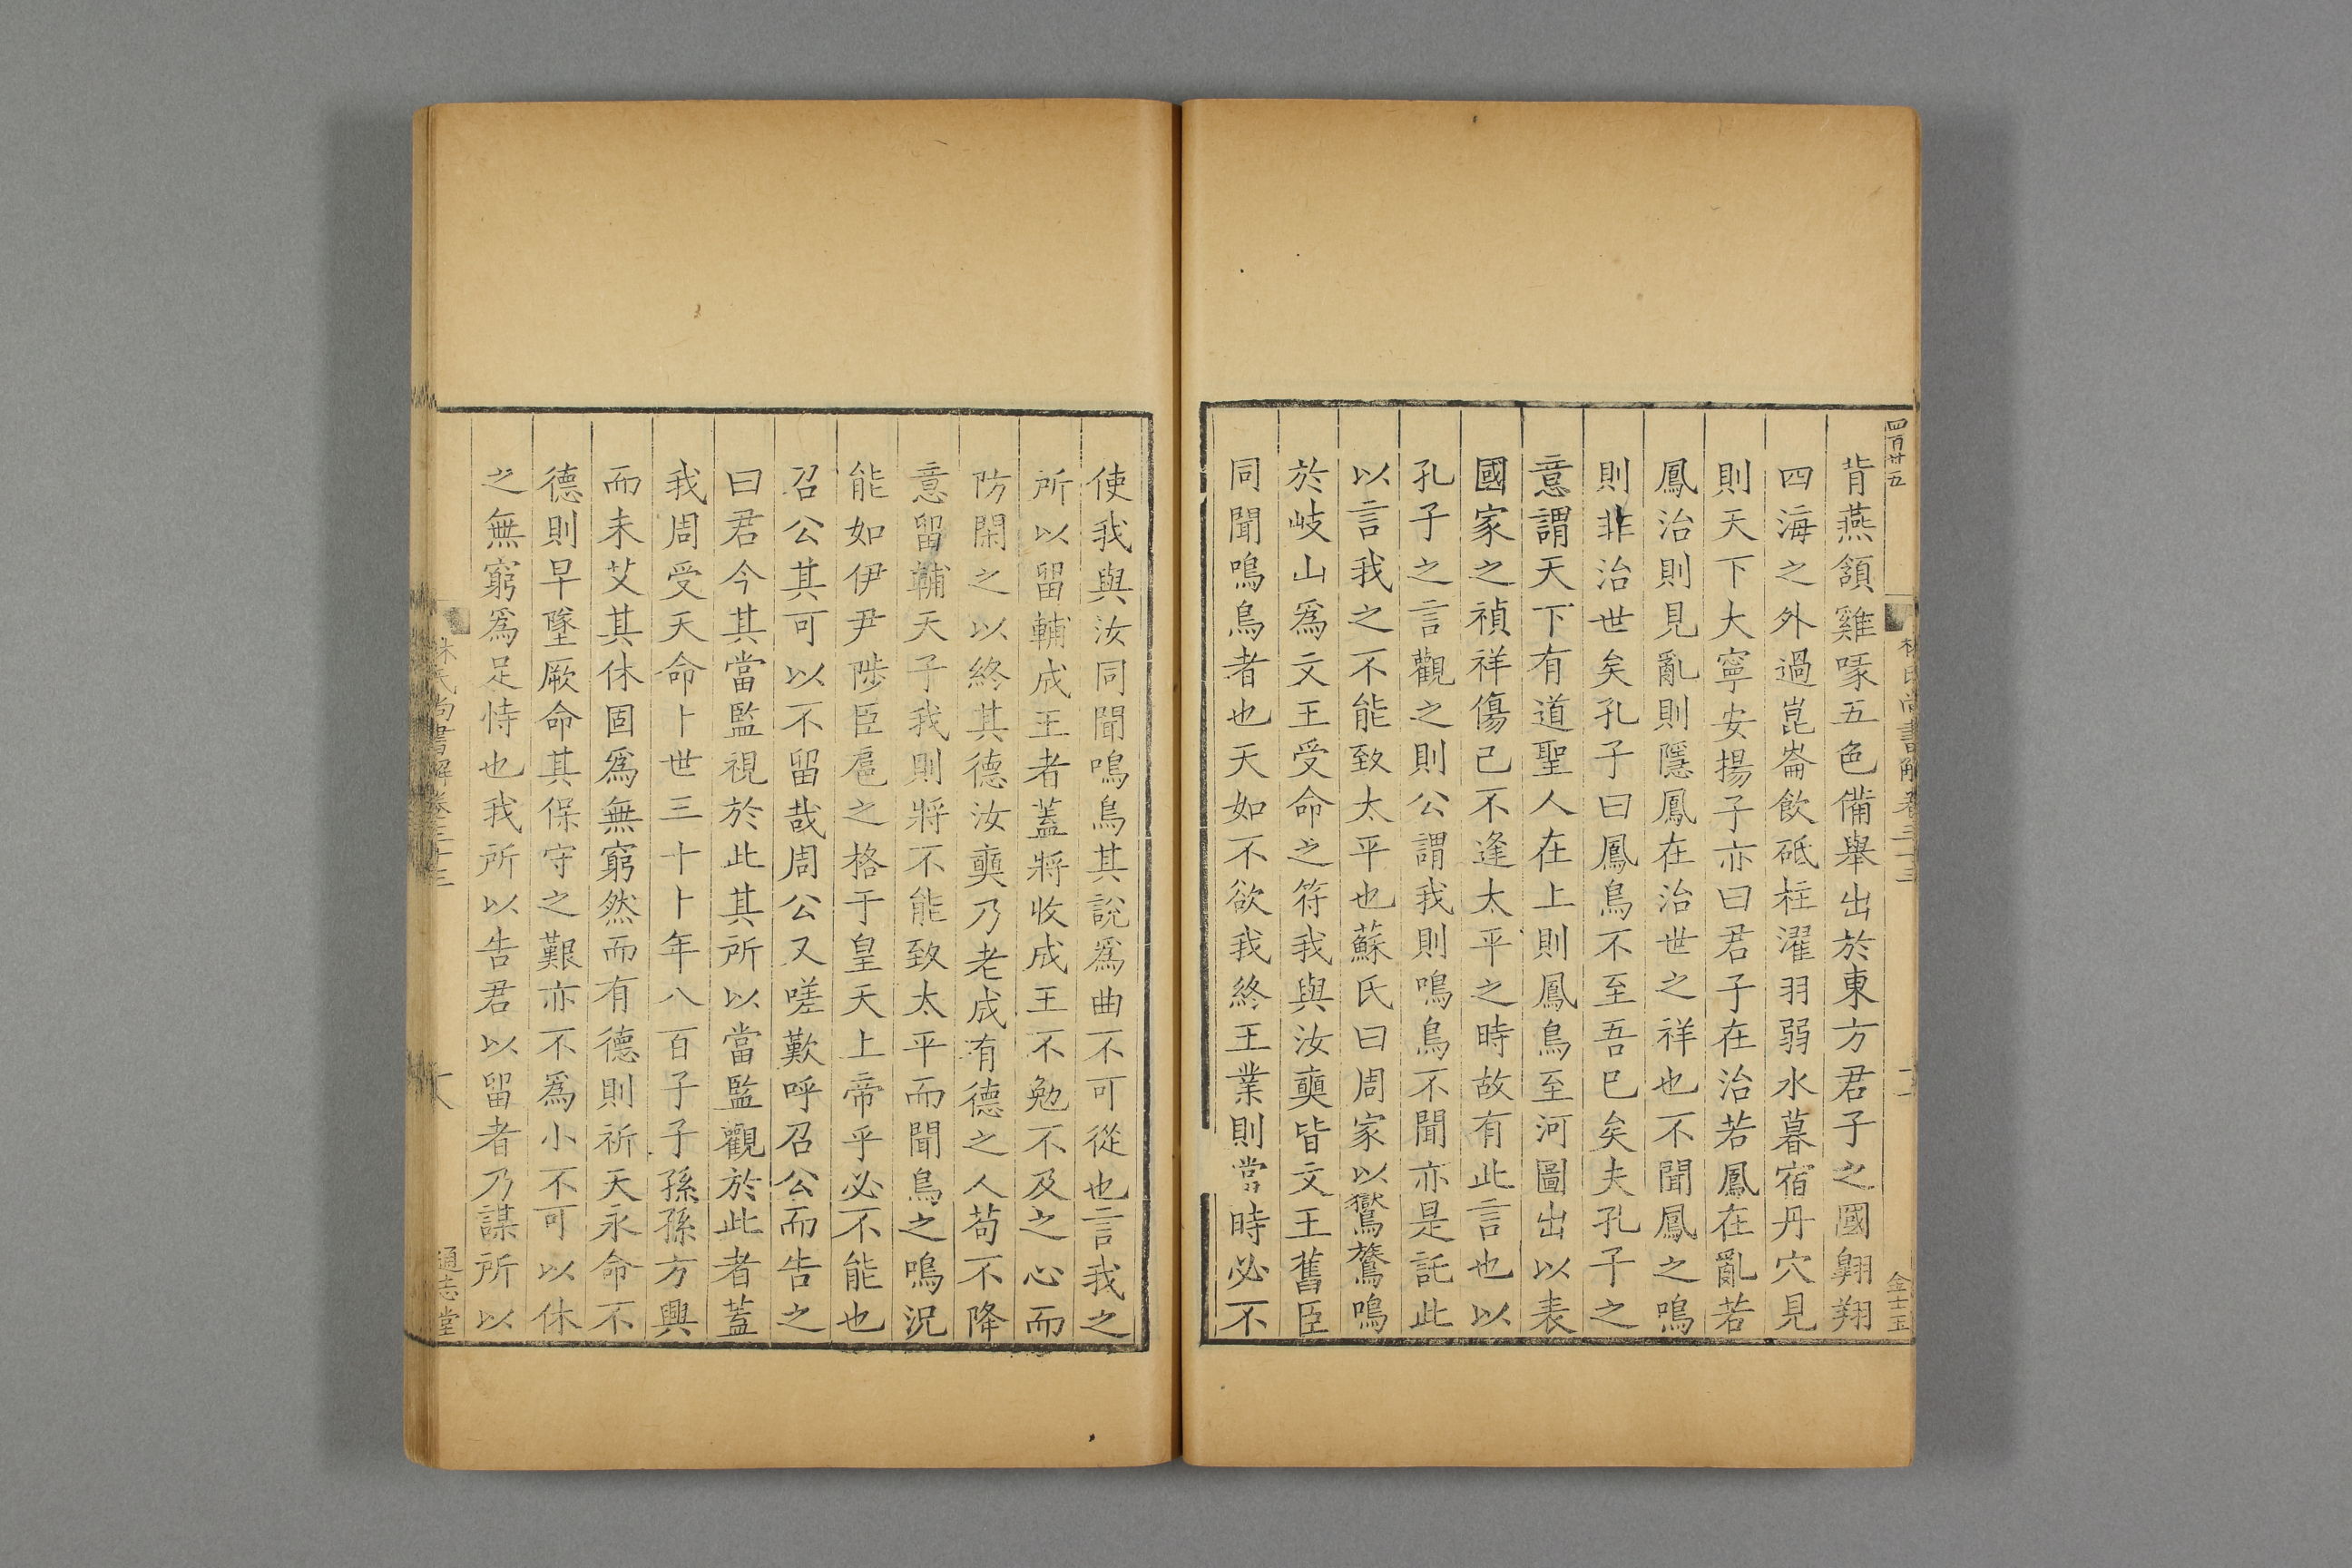 四百廿五
林氏尚書解卷三十三
金士玉
背燕頷雞喙五色備舉出於東方君子之國翺翔
四海之外過崑崙飲砥柱濯羽弱水暮宿丹穴見
則天下大寧安揚子亦曰君子在治若鳳在亂若
鳳治則見亂則隱鳳在治世之祥也不聞鳳之鳴
則非治世矣孔子曰鳳鳥不至吾已矣夫孔子之
意謂天下有道聖人在上則鳳鳥至河圖出以表
國家之禎祥傷己不逢太平之時故有此言也以
孔子之言觀之則公謂我則鳴鳥不聞亦是託此
以言我之不能致太平也蘇氏曰周家以鸑鷟鳴
於岐山爲文王受命之符我與汝奭皆文王舊臣
同聞鳴鳥者也天如不欲我終王業則當時必不
使我與汝同聞鳴鳥其說爲曲不可從也言我之
所以留輔成王者蓋將收成王不勉不及之心而
防閑之以終其德汝奭乃老成有德之人苟不降
意留輔天子我則將不能致太平而聞鳥之鳴況
能如伊尹陟臣扈之格于皇天上帝乎必不能也
召公其可以不留哉周公又嗟歎呼召公而告之
曰君今其當監視於此其所以當監觀於此者蓋
我周受天命卜世三十卜年八百子子孫孫方興
而未艾其休固爲無窮然而有德則祈天永命不
德則早墜厥命其保守之艱亦不爲小不可以休
之無窮爲足恃也我所以告君以留者乃謀所以
林氏尚書解卷三十三
通志堂